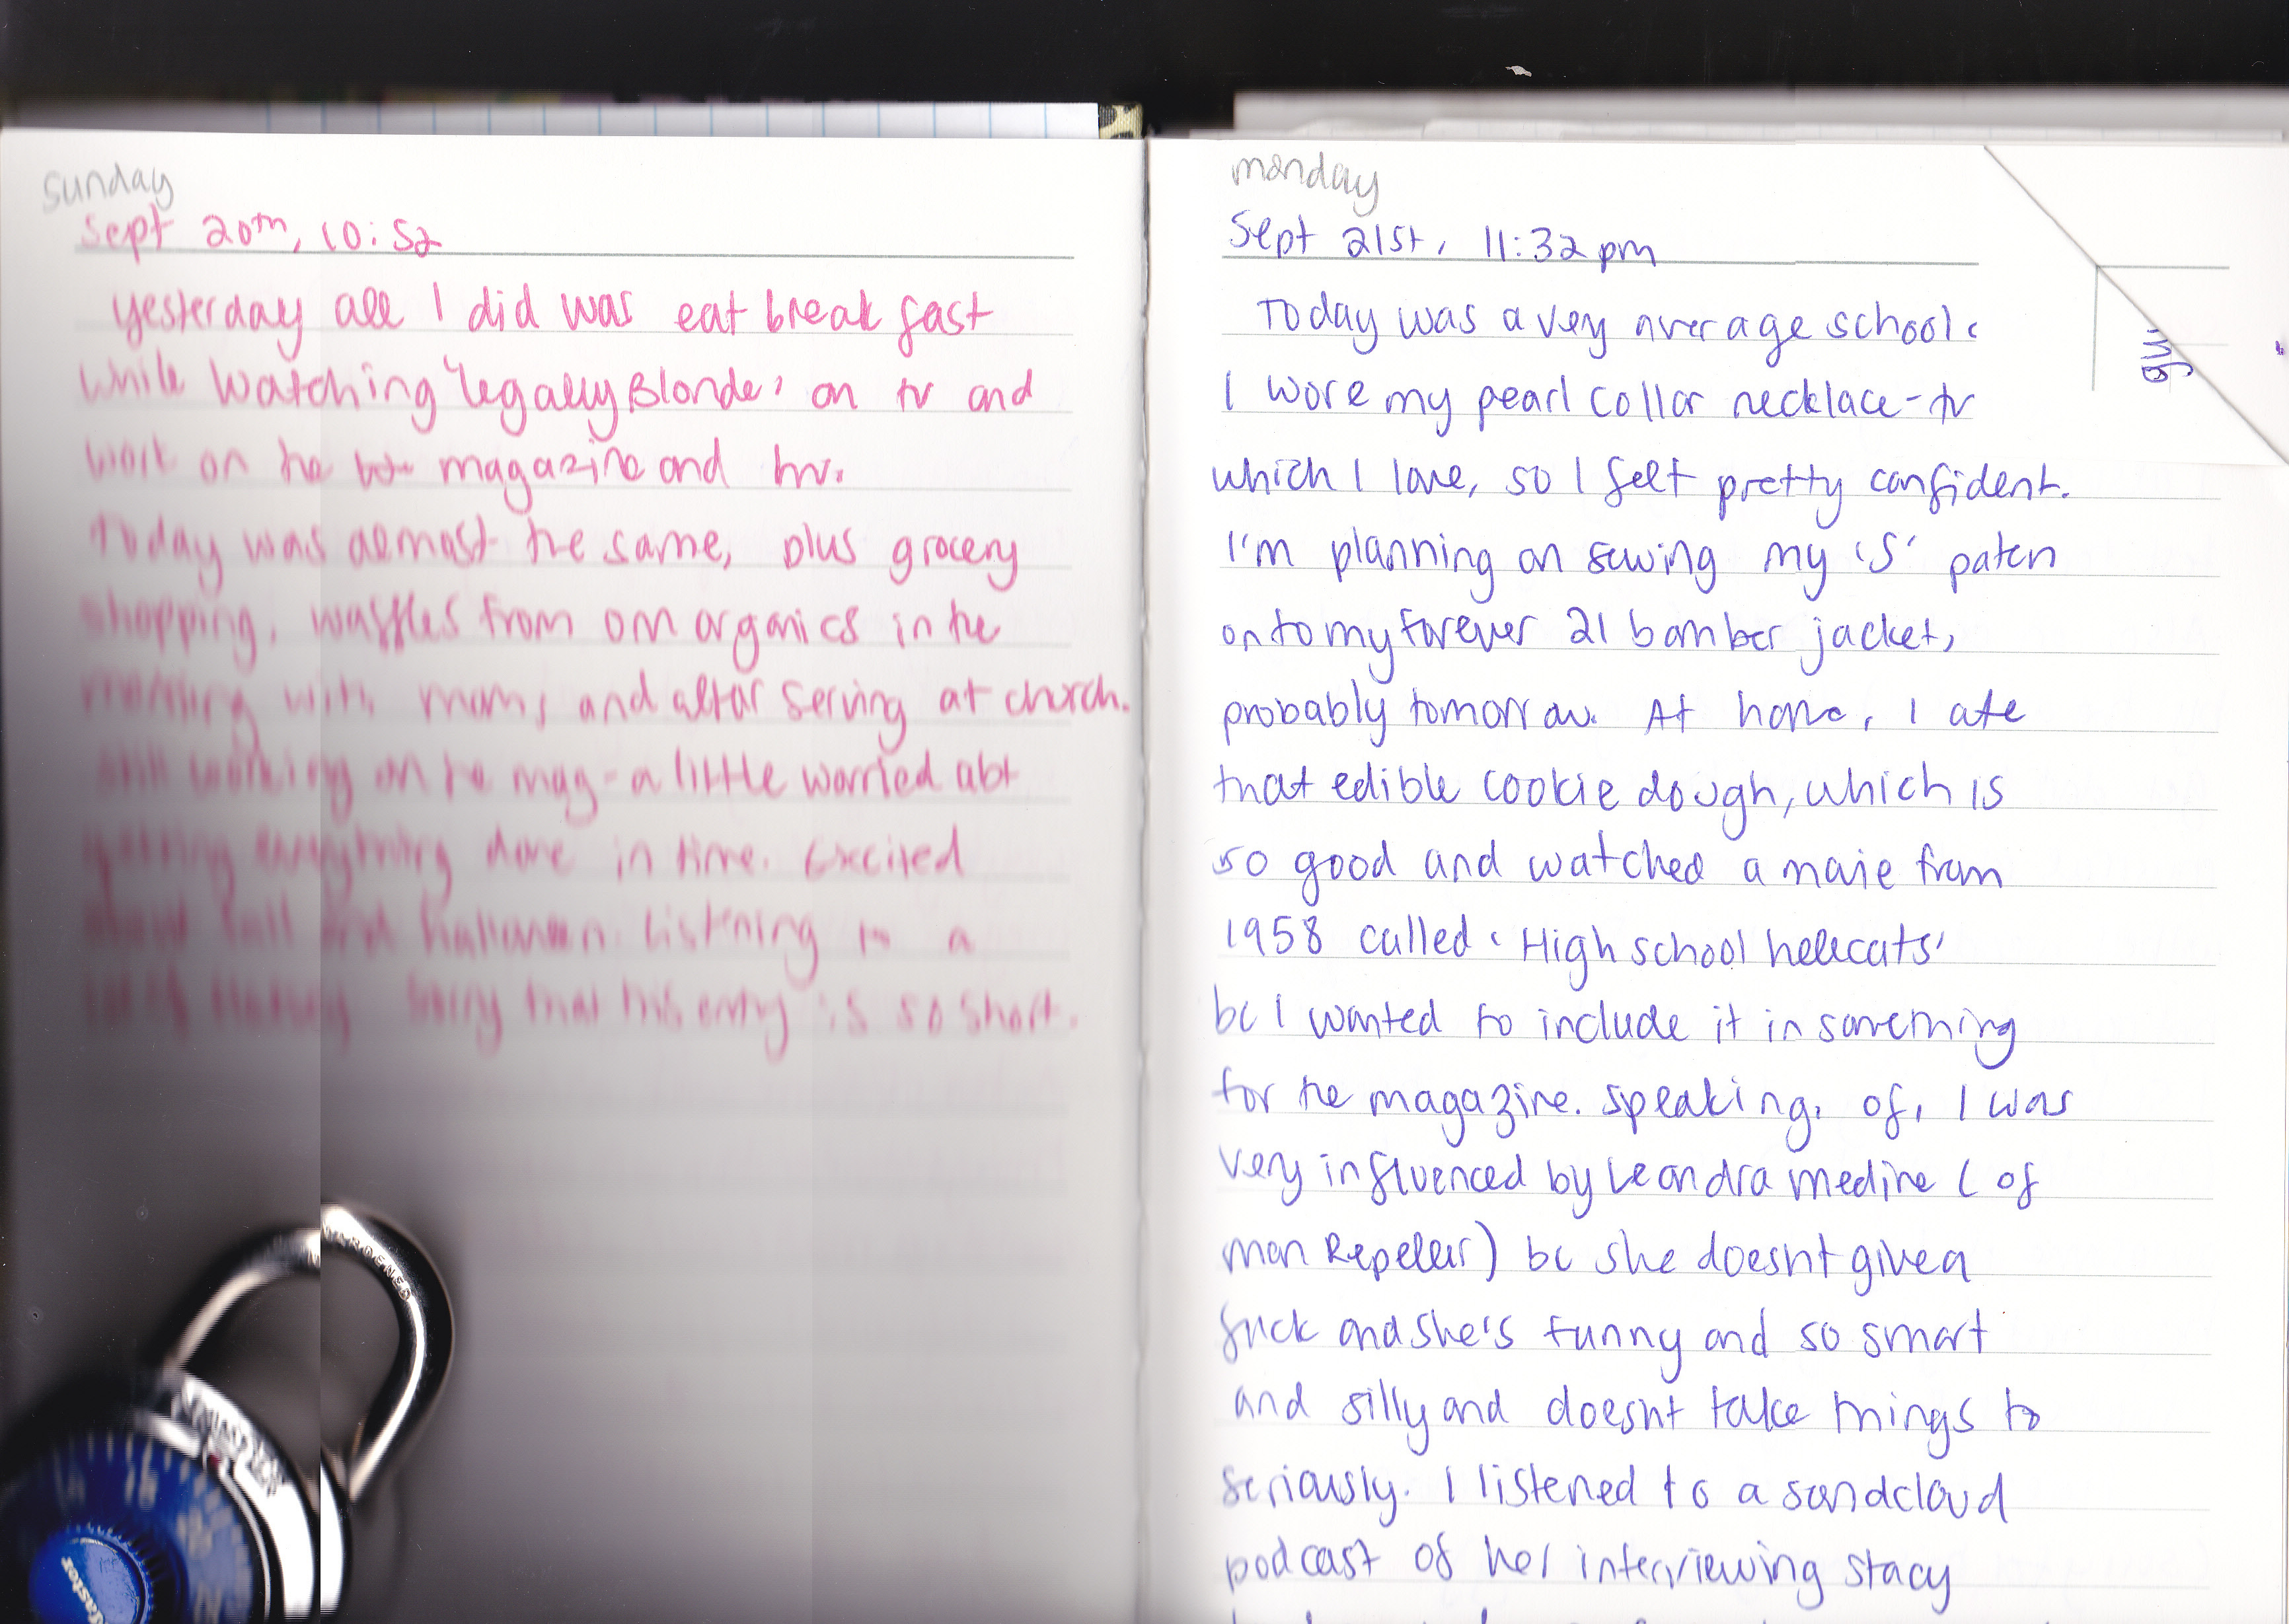 sunday
Sept 20th, 10:52
yesterday all I did was eat breakfast
while watching 'legally Blonde' on tv and
work on the magazine and hw.
Today was almost the same, plus grocery
shopping, waffles from om organics in the
morning with mom, and altar serving at church.
still working on the mag - a little worried abt
getting everything done in time. Excited
about fall and halloween. Listening to a
lot of Sorry that this entry is so short.
monday
Sept 21st, 11:32 pm
Today was a very average school
I wore my pearl collar necklace -
which I love, so I felt pretty confident.
I'm planning on sewing my 'S' patch
onto my forever 21 bomber jacket,
probably tomorrow. At home, I ate
that edible cookie dough, which is
so good and watched a movie from
1958 called 'High school hellcats'
bc I wanted to include it in something
for the magazine. speaking, of, I was
very influenced by Leandra medine (of
man Repeller) bc she doesnt give a
fuck and she's funny and so smart
and silly and doesnt take things to
seriously. I listened to a soundcloud
podcast of her interviewing stacy
HARDENED
Master